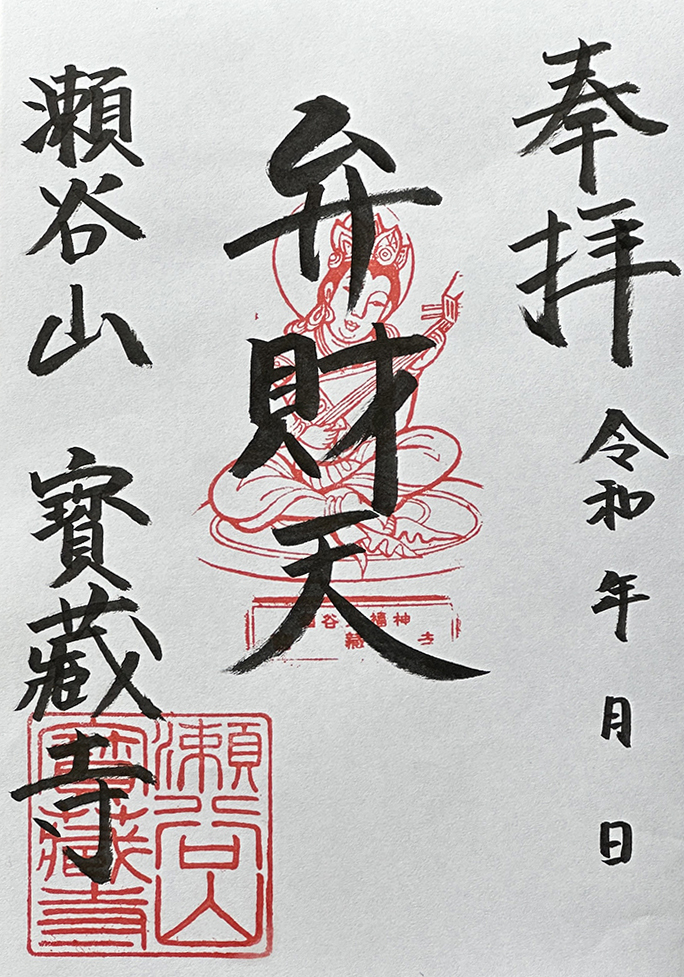 奉拝
令和 年 月 日
弁財天
谷 福神
藏 寺
瀬谷山 寳藏寺
瀬谷山
寳藏寺